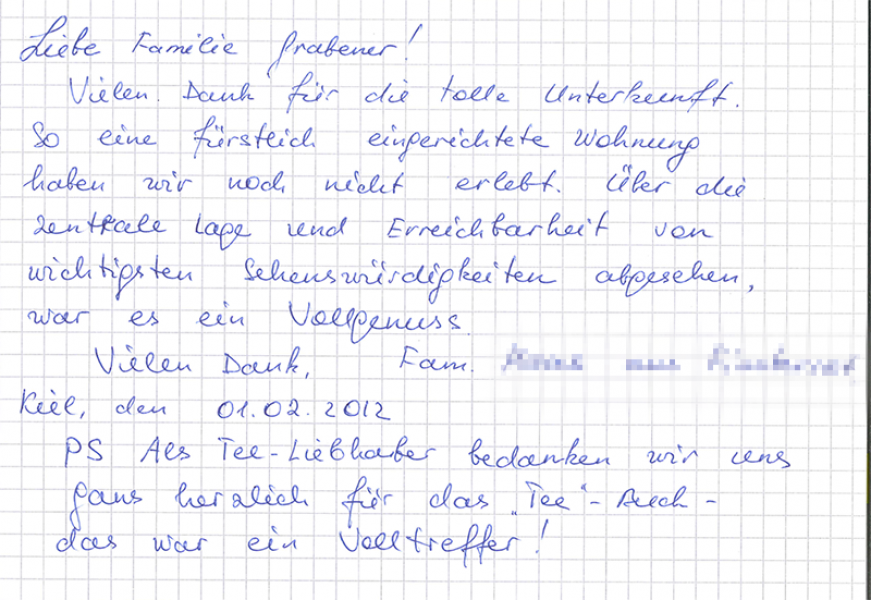 Liebe Familie Grabener!
Vielen Dank für die tolle Unterkunft.
So eine fürstlich eingerichtete Wohnung
haben wir noch nicht erlebt. Über die
zentrale Lage und Erreichbarkeit von
wichtigsten Sehenswürdigkeiten abgesehen,
war es ein Vollgenuss.
Vielen Dank, Fam.
Kiel, den 01.02.2012
PS Als Tee-Liebhaber bedanken wir uns
gans herzlich für das "Tee"-Buch -
das war ein Volltreffer!